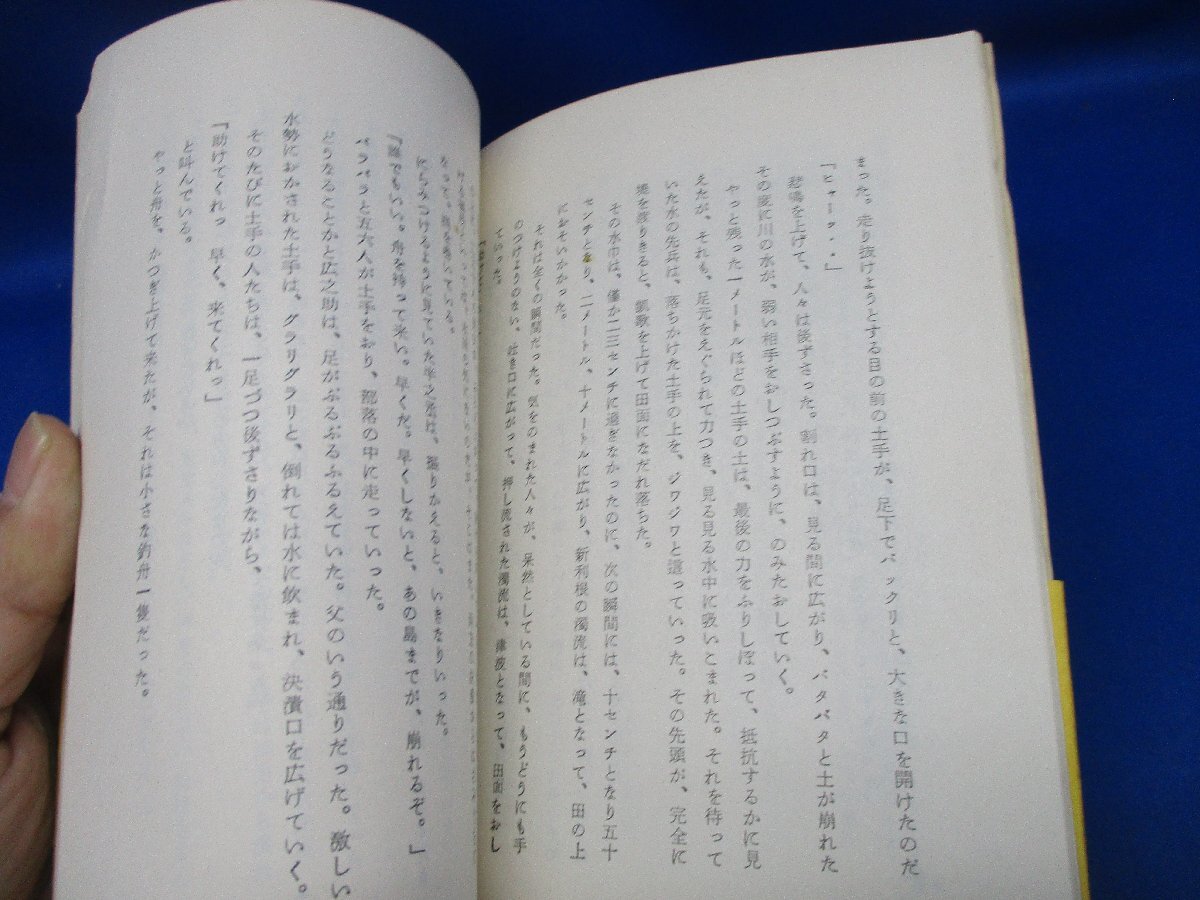 まった。走り抜けようとする目の前の土手が、足下でパックリと、大きな口を開けたのだ
「ヒャーッ・・」
悲鳴を上げて、人々は後ずさった。割れ口は、見る間に広がり、バタバタと土が崩れた
その度に川の水が、弱い相手をおしつぶすように、のみたおしていく。
やっと残った一メートルほどの土手の土は、最後の力をふりしぼって、抵抗するかに見
えたが、それも、足元をえぐられて力つき、見る見る水中に吸いとまれた。それを待って
いた水の先兵は、落ちかけた土手の上を、ジワジワと這っていった。その先頭が、完全に
境を渡りきると、凱歌を上げて田面になだれ落ちた。
その水巾は、僅か二三センチに過ぎなかったのに、次の瞬間には、十センチとなり五十
センチとなり、二メートル、十メートルに広がり、新利根の濁流は、滝となって、田の上
におそいかかった。
それは全くの瞬間だった。気をのまれた人々が、呆然としている間に、もうどうにも手
のつけようのない、吐き口に広がって、押し流された濁流は、津波となって、田面をおし
ていった。
なって、
にらみつけるように見ていた
は、振りかえると、いきなりいった。
「誰でもいい。舟を持って来い。早くだ。早くしないと、あの島までが、崩れるぞ。」
バラバラと五六人が土手をおり、部落の中に走っていった。
どうなることかと広之助は、足がぶるぶるふるえていた。父のいう通りだった。激しい
水勢におかされた土手は、グラリグラリと、倒れては水に飲まれ、決潰口を広げていく。
そのたびに土手の人たちは、一足づつ後ずさりながら、
「助けてくれっ　早く、来てくれっ」
と叫んでいる。
やっと舟を、かつぎ上げて来たが、それは小さな釣舟一隻だった。